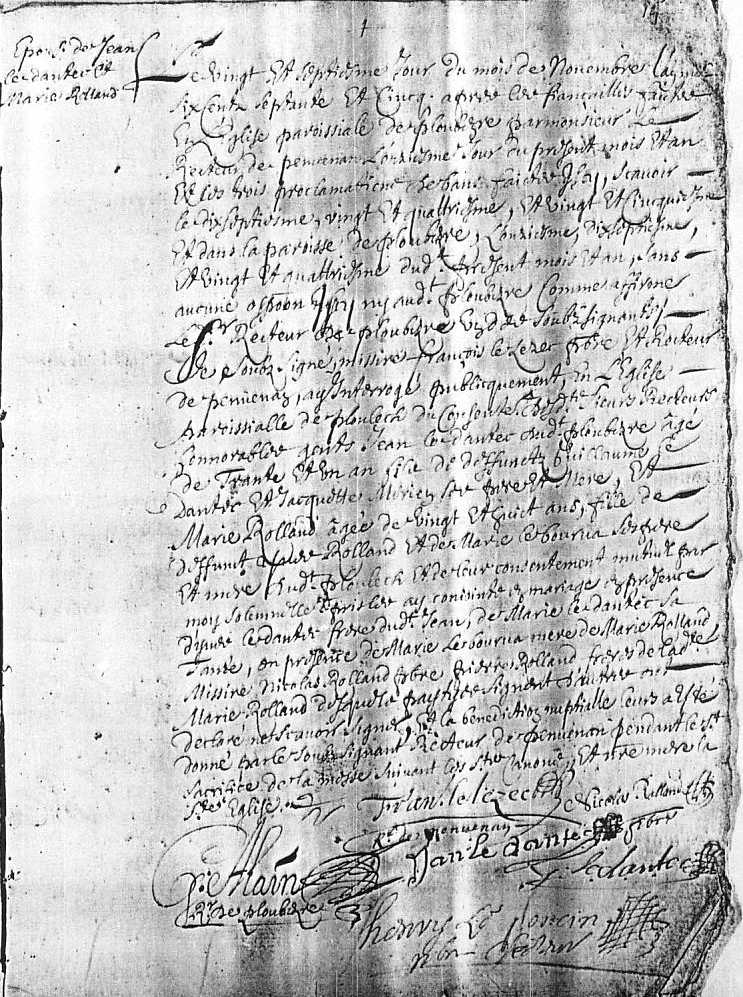 Epous. de Jean
le dantec et
Marie Rolland
Le vingt et septiesme jour du mois de Novembre l'an mil
six Cents septante et Cincq, apres les fiançailles faittes
En l'Eglise paroissiale de ploubezre par monsieur Le
Recteur de penvenan L'onziesme jour du present mois et an
Et les trois proclamations de bans faittes Icy, scavoir
le dixseptiesme, vingt et quattriesme, et vingt et cincquiesme
Et dans la paroisse de ploubezre, L'onziesme, dixseptiesme,
Et vingt et quattriesme dud.t present mois et an, sans
aucune oposon Icy ny aud.t ploubezre Comme affirone
Le Sr. Recteur de ploubezre un des soubzsignants,
Je soubz signé, missire françois le Lezec pbre et Recteur
de penvenan, ay Interrogé publicquement, en L'Eglise
parroissialle de ploulech du Consente. desd.ts sieurs Recteurs
honnorables gents Jean le dantec dud.t ploubezre âgé
de Trante et un an fils de deffuncts Guillaume le
dantec et Jacquette ses pere et Mere, Et
Marie Rolland âgée de vingt et huict ans, fille de
deffunct Rolland et de Marie le bourva ses pere
et mere dud.t ploulech et de leur consentement mutuel par
moy solemnellet. pris les ay conjoints en mariage en presence
d'yves le dantec frere dud.t Jean, de Marie le dantec sa
Tante, en presence de Marie Le bourva mere de Marie Rolland
Missire Nicolas Rolland pbre pierre Rolland freres de lad.te
Marie Rolland desquels partyes signent d'autres ont
declaré ne scavoir signer, Et la benediction nuptialle leurs a esté
donné par le soubz signant Recteur de penvenan pendant le st
sacrifice de la messe suivant les sts Canons, et nre mere la
ste Eglise.
fran. le lezec
Nicolas Rolland
Rr de penvenan
pbre
Jan Le dantec
Y. le dantec
P. Alain
Rr de ploubezre
henry